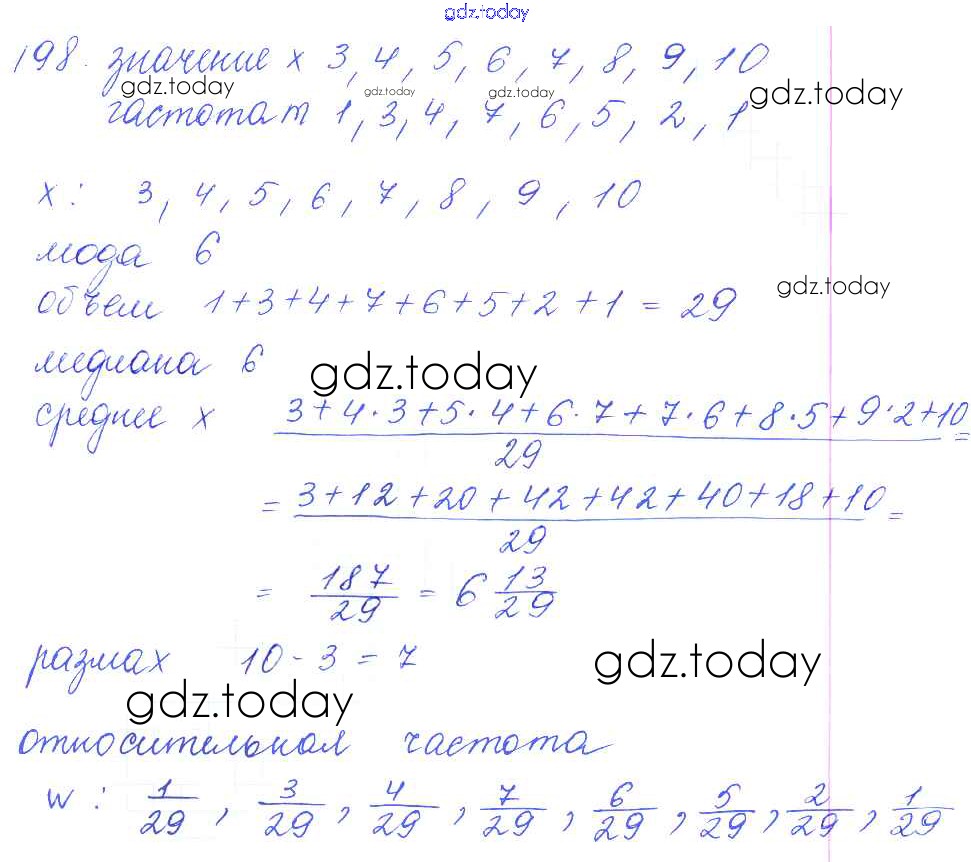 gdz.today
198. значение x 3, 4, 5, 6, 7, 8, 9, 10
gdz.today gdz.today gdz.today gdz.today
частота m 1, 3, 4, 7, 6, 5, 2, 1
x: 3, 4, 5, 6, 7, 8, 9, 10
мода 6
gdz.today
объем 1+3+4+7+6+5+2+1 = 29
медиана 6
gdz.today
среднее x (3+4·3+5·4+6·7+7·6+8·5+9·2+10)/29 =
= (3+12+20+42+42+40+18+10)/29 =
= 187/29 = 6 13/29
размах 10-3=7
gdz.today
gdz.today
относительная частота
w: 1/29, 3/29, 4/29, 7/29, 6/29, 5/29, 2/29, 1/29